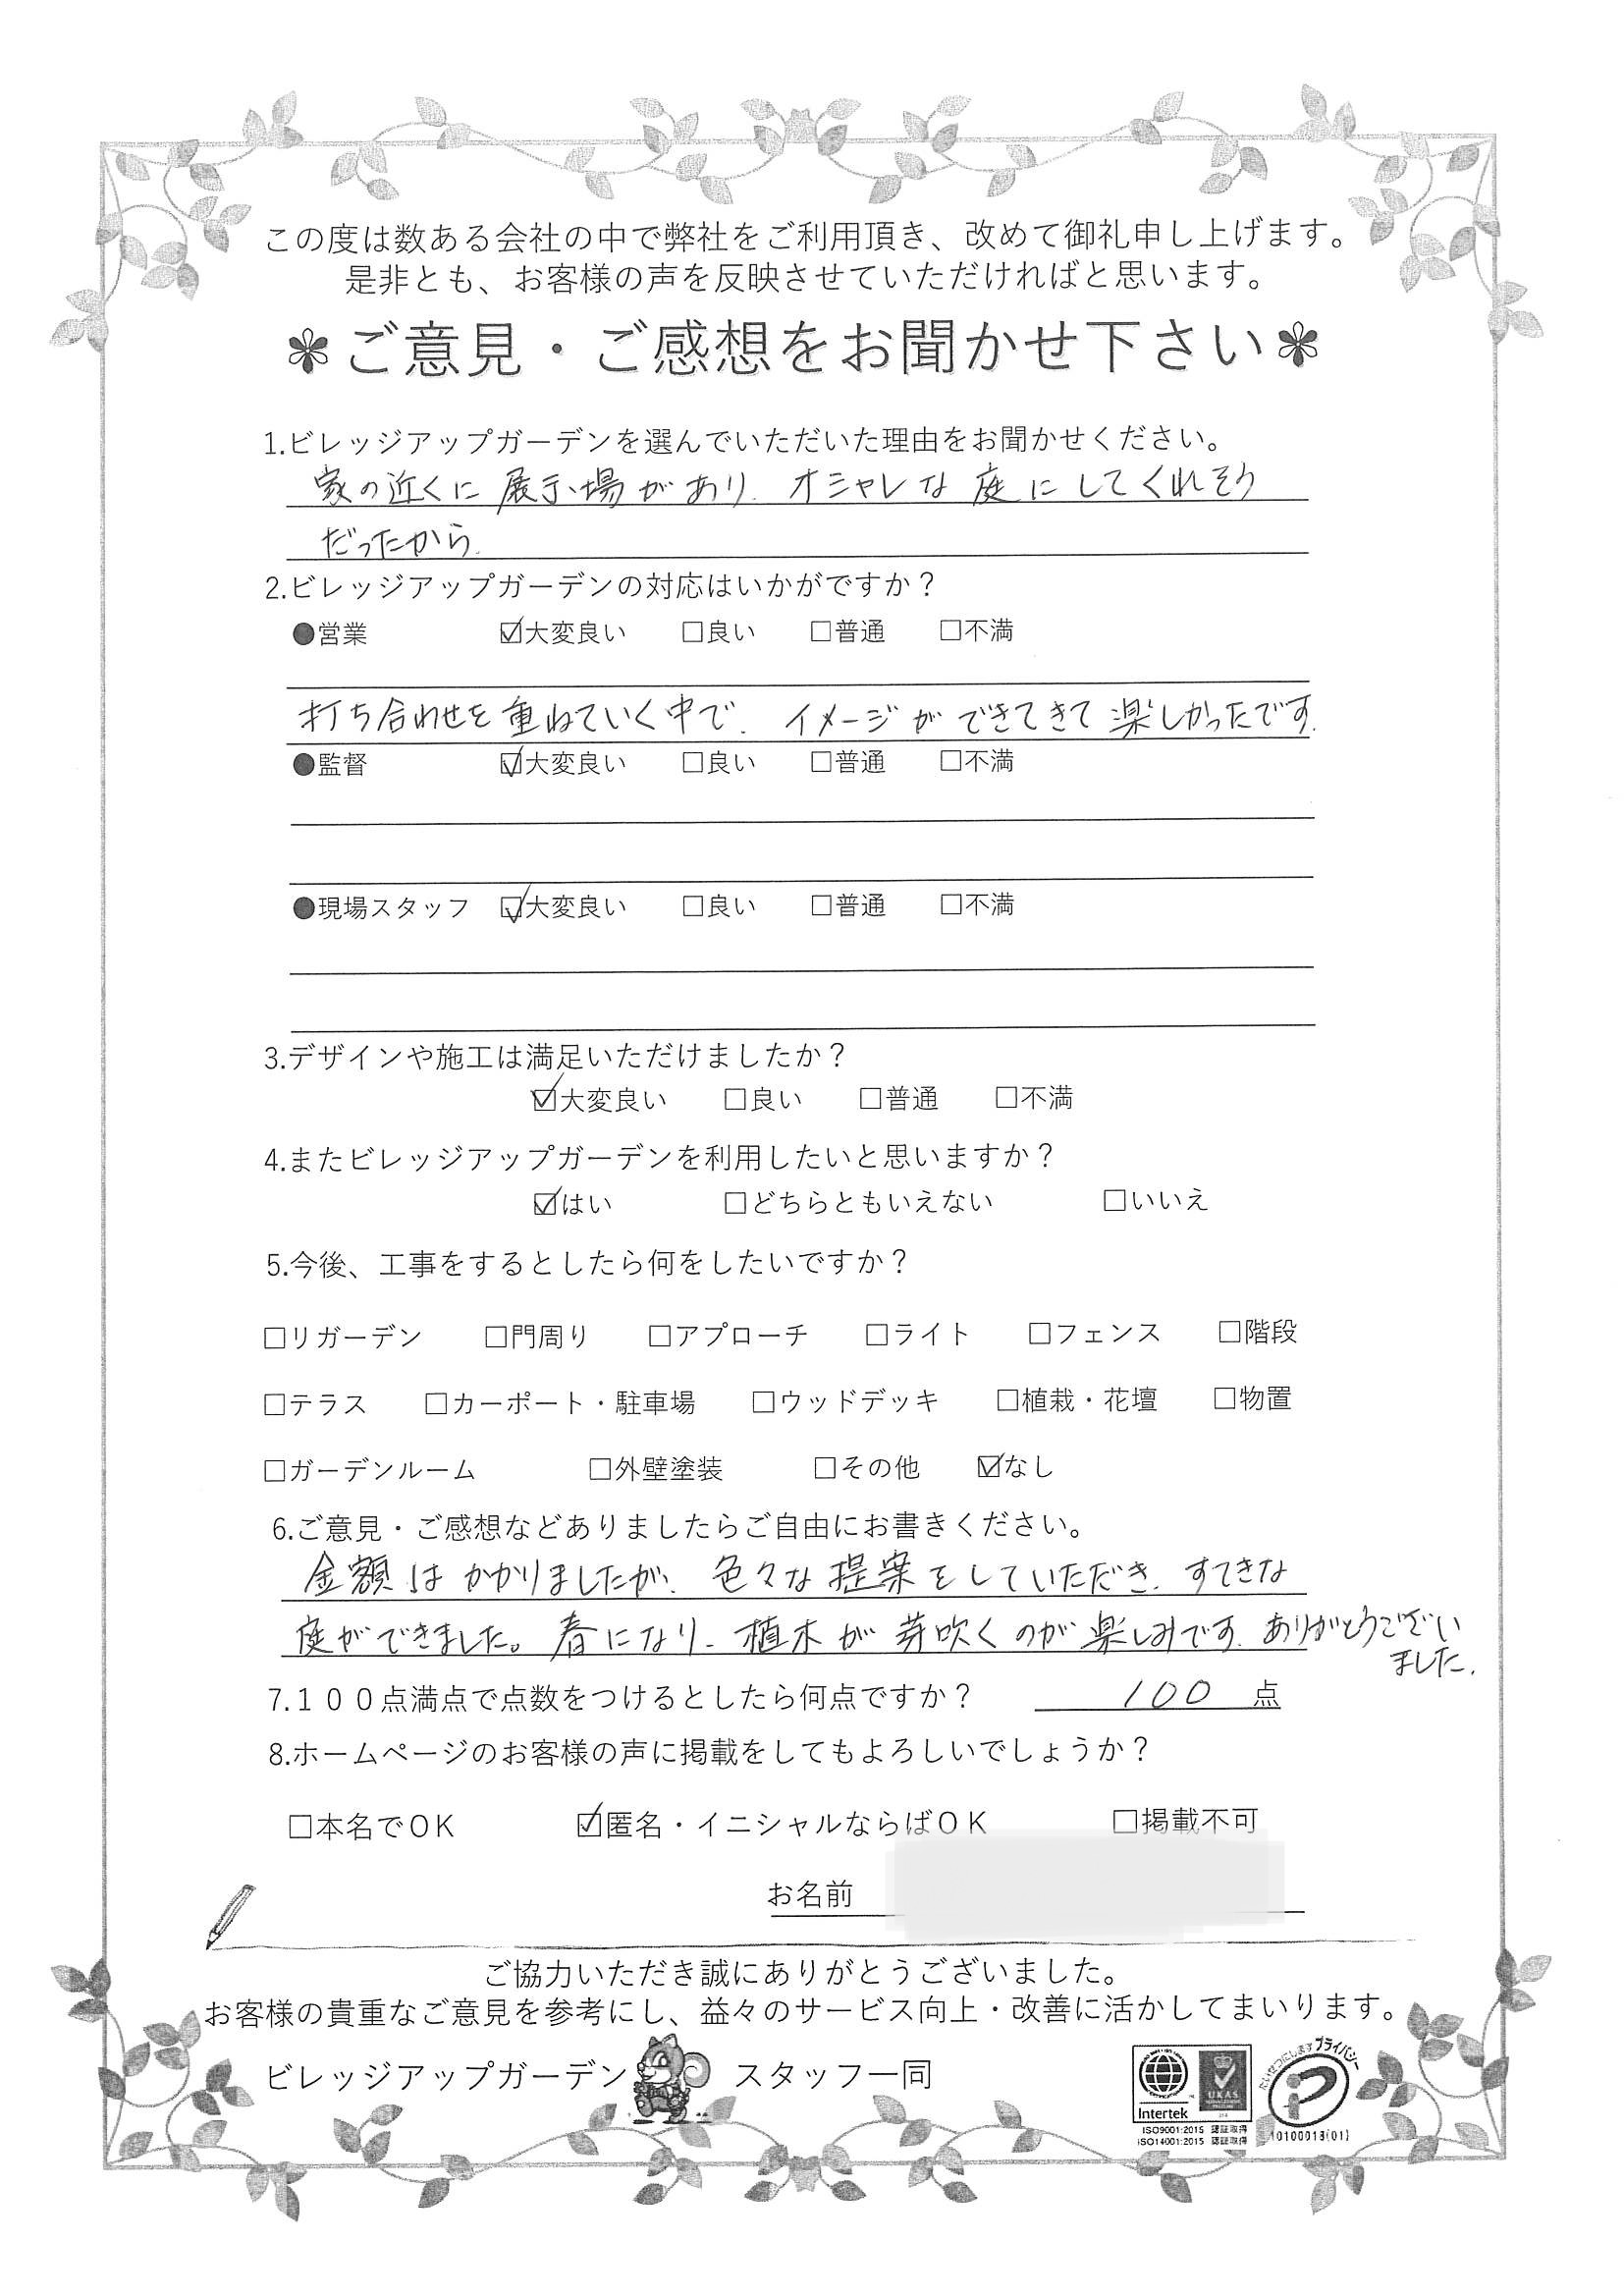 この度は数ある会社の中で弊社をご利用頂き、改めて御礼申し上げます。
是非とも、お客様の声を反映させていただければと思います。
✽ご意見・ご感想をお聞かせ下さい✽
1.ビレッジアップガーデンを選んでいただいた理由をお聞かせください。
家の近くに展示場があり、オシャレな庭にしてくれそう
だったから。
2.ビレッジアップガーデンの対応はいかがですか？
●営業 ☑大変良い □良い □普通 □不満
打ち合わせを重ねていく中で、イメージができてきて楽しかったです。
●監督 ☑大変良い □良い □普通 □不満
●現場スタッフ ☑大変良い □良い □普通 □不満
3.デザインや施工は満足いただけましたか？
☑大変良い □良い □普通 □不満
4.またビレッジアップガーデンを利用したいと思いますか？
☑はい □どちらともいえない □いいえ
5.今後、工事をするとしたら何をしたいですか？
□リガーデン □門周り □アプローチ □ライト □フェンス □階段
□テラス □カーポート・駐車場 □ウッドデッキ □植栽・花壇 □物置
□ガーデンルーム □外壁塗装 □その他 ☑なし
6.ご意見・ご感想などありましたらご自由にお書きください。
金額はかかりましたが、色々な提案をしていただき、すてきな
庭ができました。春になり、植木が芽吹くのが楽しみです。ありがとうござい
ました。
7.１００点満点で点数をつけるとしたら何点ですか？ 100 点
8.ホームページのお客様の声に掲載をしてもよろしいでしょうか？
□本名でＯＫ ☑匿名・イニシャルならばＯＫ □掲載不可
お名前
ご協力いただき誠にありがとうございました。
お客様の貴重なご意見を参考にし、益々のサービス向上・改善に活かしてまいります。
ビレッジアップガーデン スタッフ一同
Intertek
UKAS
ISO9001:2015 認証取得
ISO14001:2015 認証取得
たいせつにします プライバシー
10100013(01)